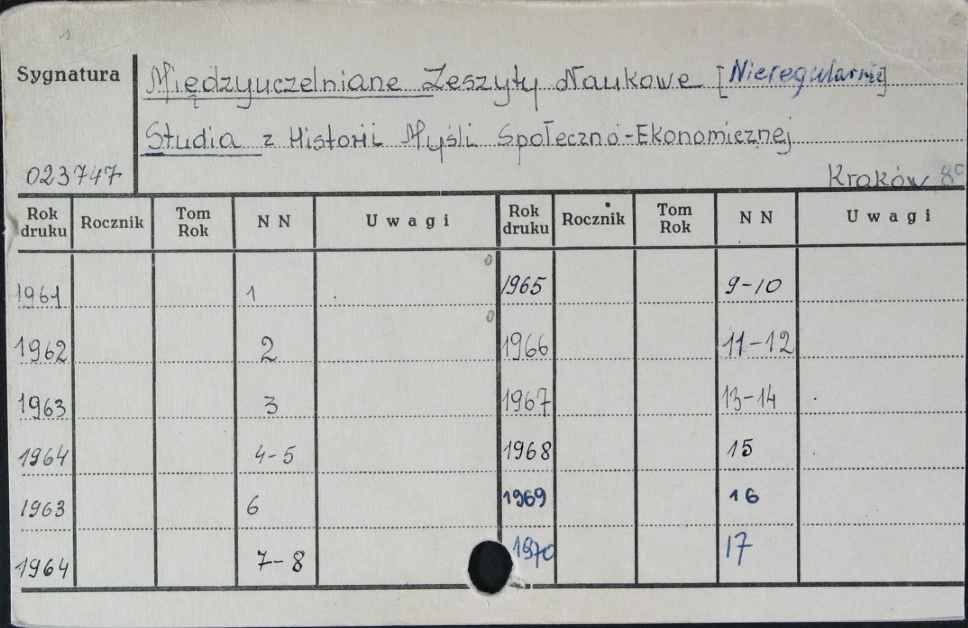 Sygnatura
Międzyuczelniane Zeszyty Naukowe [Nieregularnie]
Studia z Historii Myśli Społeczno-Ekonomicznej
023747
Kraków 8°
Rok druku Rocznik Tom Rok NN Uwagi Rok druku Rocznik Tom Rok NN Uwagi
1961 1 1965 9-10
1962 2 1966 11-12
1963 3 1967 13-14
1964 4-5 1968 15
1963 6 1969 16
1964 7-8 1970 17